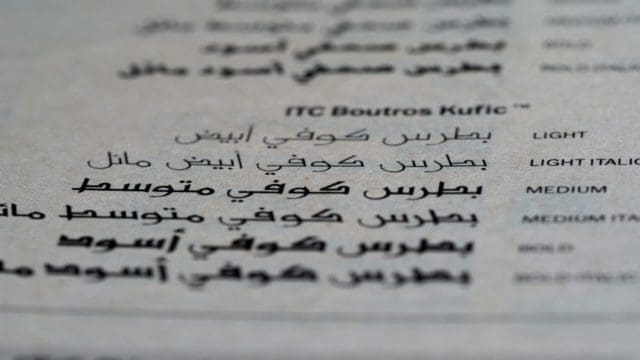 بطرس صحفي أسود BOLD
بطرس صحفي أسود مائل BOLD ITALIC
ITC Boutros Kufic™
بطرس كوفي أبيض LIGHT
بطرس كوفي أبيض مائل LIGHT ITALIC
بطرس كوفي متوسط MEDIUM
بطرس كوفي متوسط مائ MEDIUM ITA
بطرس كوفي أسود BOLD
بطرس كوفي أسود ما BOLD ITALIC